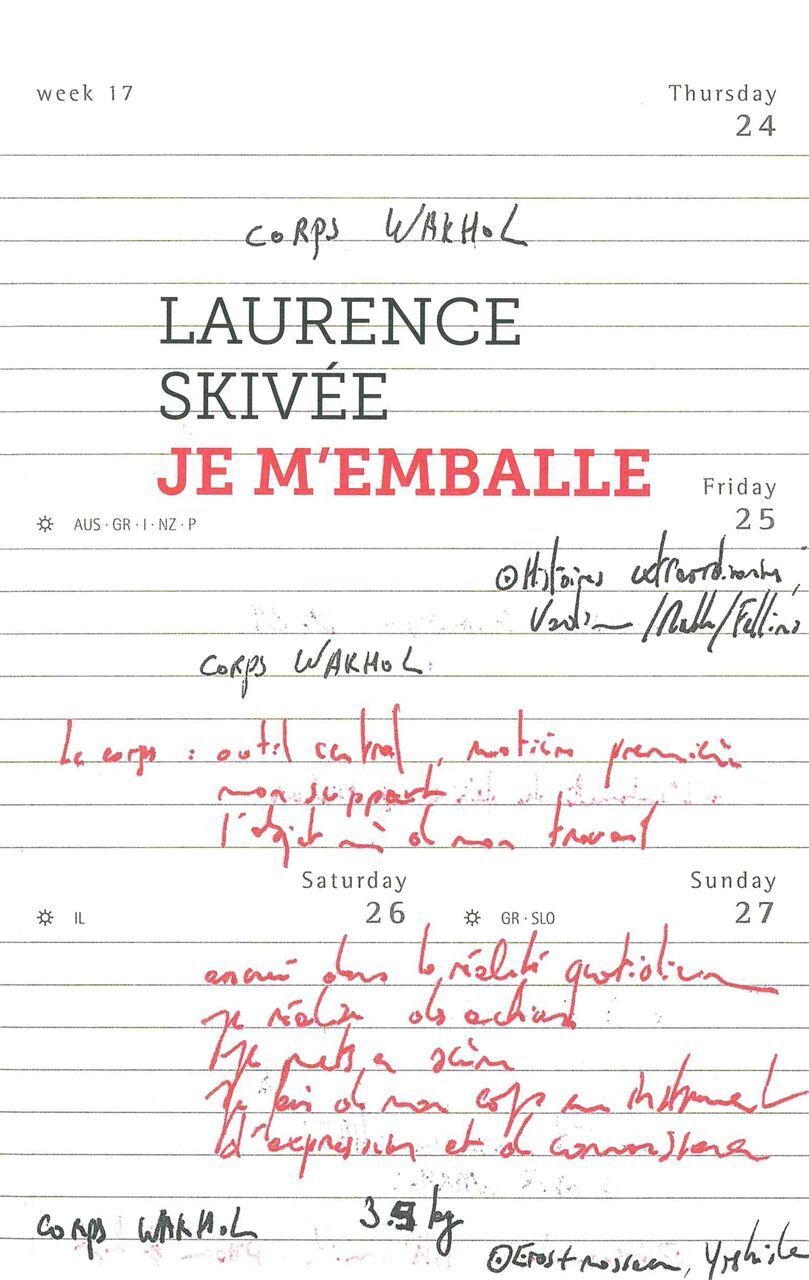 week 17
Thursday
24
CORPS WAKHOL
LAURENCE
SKIVÉE
JE M'EMBALLE
Friday
25
AUS·GR·I·NZ·P
Histoires extraordinaires,
/Fellini
CORPS WAKHOL
Le corps : outil central, matière première
mon support
l'objet même de mon travail
Saturday
26
Sunday
27
IL
GR·SLO
ancré dans la réalité quotidienne
je réalise des actions
je mets en scène
Je fais de mon corps un instrument
d'expression et de connaissance
CORPS WAKHOL
kg